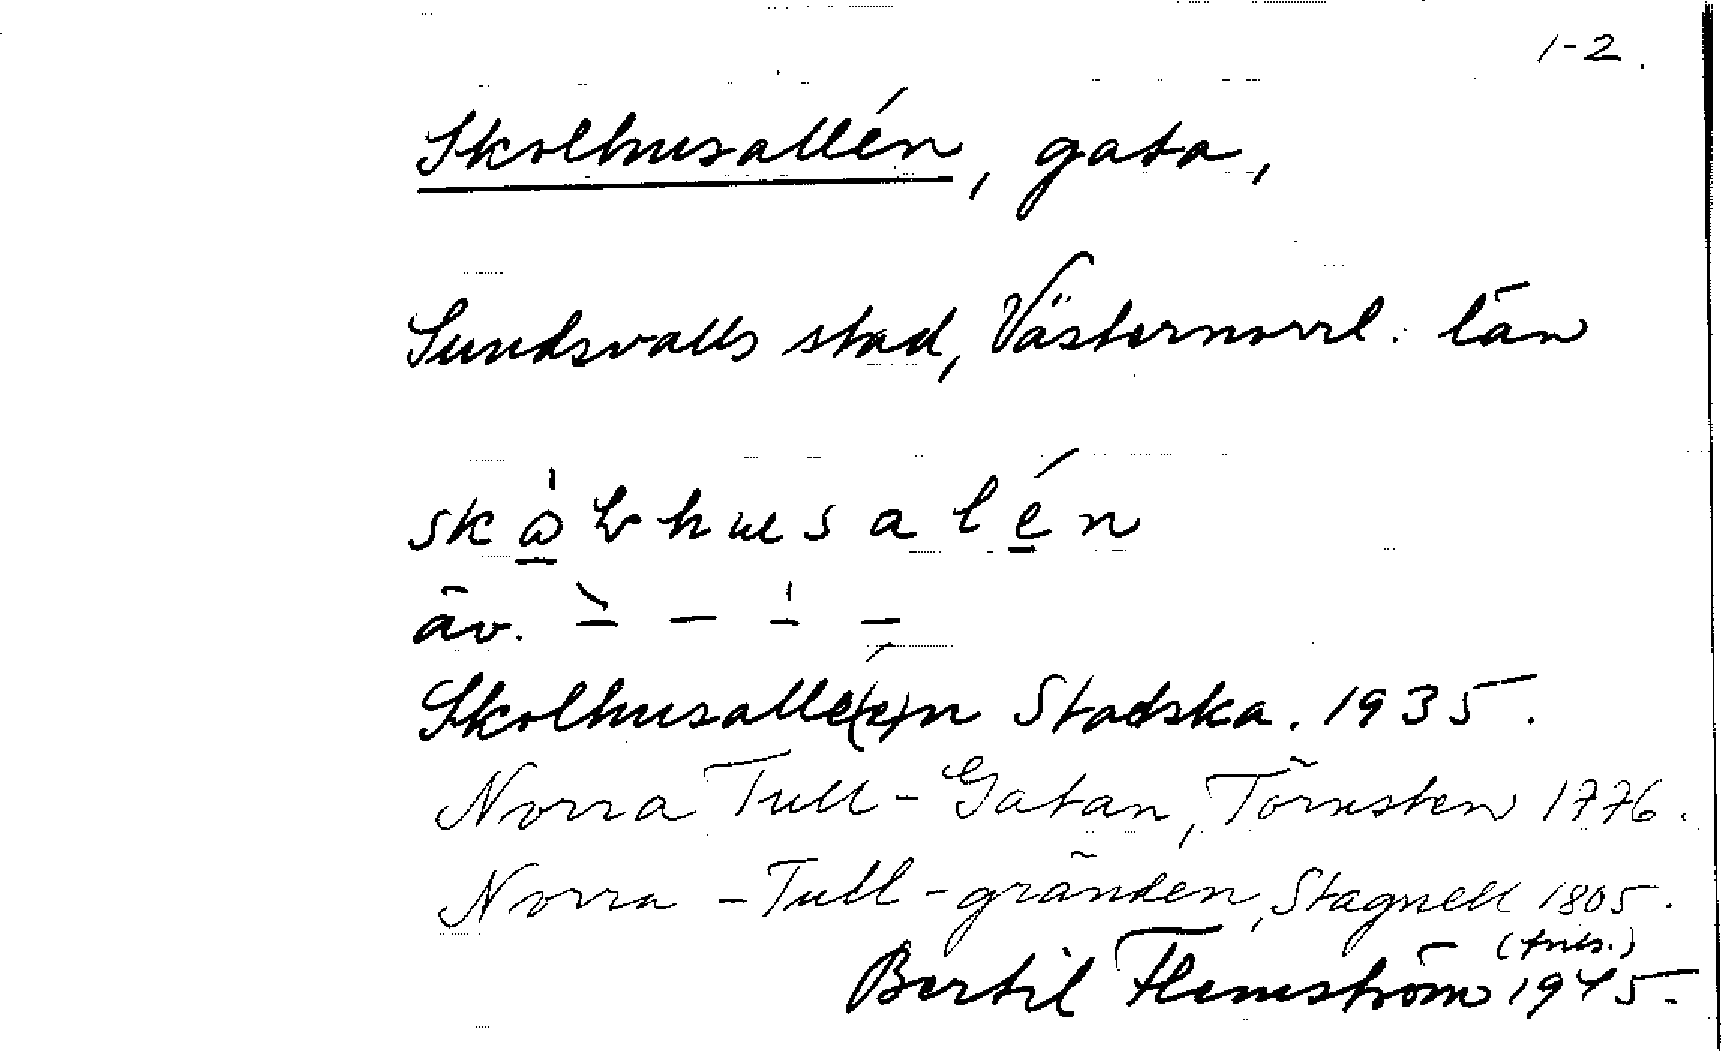 1-2.
Skolhusallén, gata,
Sundsvalls stad, Västernorrl. län
skå̀lhusalén
äv. ̀– – ̍– –
Skolhusallé(e)n Stadska. 1935.
Norra Tull-Gatan, Törnsten 1776.
Norra -Tull-gränden, Stagnell 1805.
(tills.)
Bertil Flemström 1945.